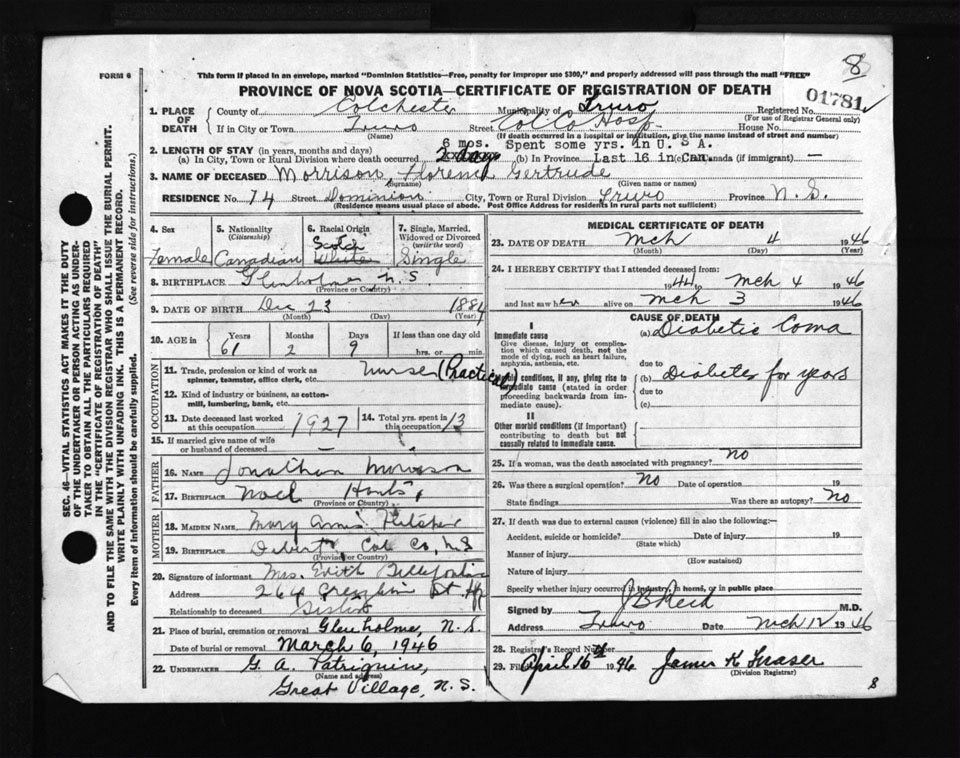 8
FORM 6
This form if placed in an envelope, marked "Dominion Statistics—Free, penalty for improper use $300," and properly addressed will pass through the mail "FREE"
PROVINCE OF NOVA SCOTIA—CERTIFICATE OF REGISTRATION OF DEATH
01781
1. PLACE OF DEATH
County of Colchester Municipality of Truro Registered No.
(For use of Registrar General only)
If in City or Town Truro Street Col Co Hosp House No.
(Name) (If death occurred in a hospital or institution, give the name instead of street and number)
6 mos. Spent some yrs. in U. S A.
2. LENGTH OF STAY (in years, months and days)
(a) In City, Town or Rural Division where death occurred 2 days (b) In Province Last 16 in Can. (c) Canada (if immigrant) —
3. NAME OF DECEASED Morrison, Florence Gertrude
(Surname) (Given name or names)
RESIDENCE No. 74 Street Dominion City, Town or Rural Division Truro Province N.S.
(Residence means usual place of abode. Post Office Address for residents in rural parts not sufficient)
4. Sex
Female
5. Nationality
(Citizenship)
Canadian
6. Racial Origin
Scotch
White
7. Single, Married, Widowed or Divorced
(write the word)
Single
8. BIRTHPLACE Glenholme N.S.
(Province or Country)
9. DATE OF BIRTH Dec 23 1884
(Month) (Day) (Year)
10. AGE in
Years Months Days If less than one day old
61 2 9 hrs. or min.
OCCUPATION
11. Trade, profession or kind of work as spinner, teamster, office clerk, etc. Nurse (Practical)
12. Kind of industry or business, as cotton-mill, lumbering, bank, etc.
13. Date deceased last worked at this occupation 1927
14. Total yrs. spent in this occupation 13
15. If married give name of wife or husband of deceased —
FATHER
16. NAME Jonathan Morrison
17. BIRTHPLACE Noel Hants,
(Province or Country)
MOTHER
18. MAIDEN NAME Mary Ann Fletcher
19. BIRTHPLACE Debert, Col Co, N.S
(Province or Country)
20. Signature of informant Mrs. Edith
Address 264 St Hfx
Relationship to deceased Sister
21. Place of burial, cremation or removal Glenholme, N.S.
Date of burial or removal March 6, 1946
22. UNDERTAKER G. A. Patriquin,
(Name and address)
Great Village, N.S.
MEDICAL CERTIFICATE OF DEATH
23. DATE OF DEATH Mch 4 1946
(Month) (Day) (Year)
24. I HEREBY CERTIFY that I attended deceased from:
1944 to Mch 4 1946
and last saw her alive on Mch 3 1946
CAUSE OF DEATH
I
Immediate cause
Give disease, injury or complication which caused death, not the mode of dying, such as heart failure, asphyxia, asthenia, etc.
(a) Diabetic Coma
due to
Morbid conditions, if any, giving rise to immediate cause (stated in order proceeding backwards from immediate cause).
(b) Diabetes for years
due to
(c)
II
Other morbid conditions (if important) contributing to death but not causally related to immediate cause.
25. If a woman, was the death associated with pregnancy? no
26. Was there a surgical operation? no Date of operation 19
State findings Was there an autopsy? no
27. If death was due to external causes (violence) fill in also the following:—
Accident, suicide or homicide? Date of injury 19
(State which)
Manner of injury
(How sustained)
Nature of injury
Specify whether injury occurred in industry, in home, or in public place
Signed by J B Reid M.D.
Address Truro Date Mch 12 1946
28. Registrar's Record Number
29. Filed April 16th 1946 James K Fraser
(Division Registrar)
8
SEC. 46—VITAL STATISTICS ACT MAKES IT THE DUTY OF THE UNDERTAKER OR PERSON ACTING AS UNDERTAKER TO OBTAIN ALL THE PARTICULARS REQUIRED IN THE "CERTIFICATE OF REGISTRATION OF DEATH" AND TO FILE THE SAME WITH THE DIVISION REGISTRAR WHO SHALL ISSUE THE BURIAL PERMIT.
WRITE PLAINLY WITH UNFADING INK. THIS IS A PERMANENT RECORD.
Every item of information should be carefully supplied. (See reverse side for instructions.)